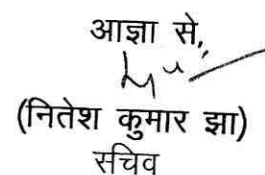 आज्ञा से,
(नितेश कुमार झा)
सचिव